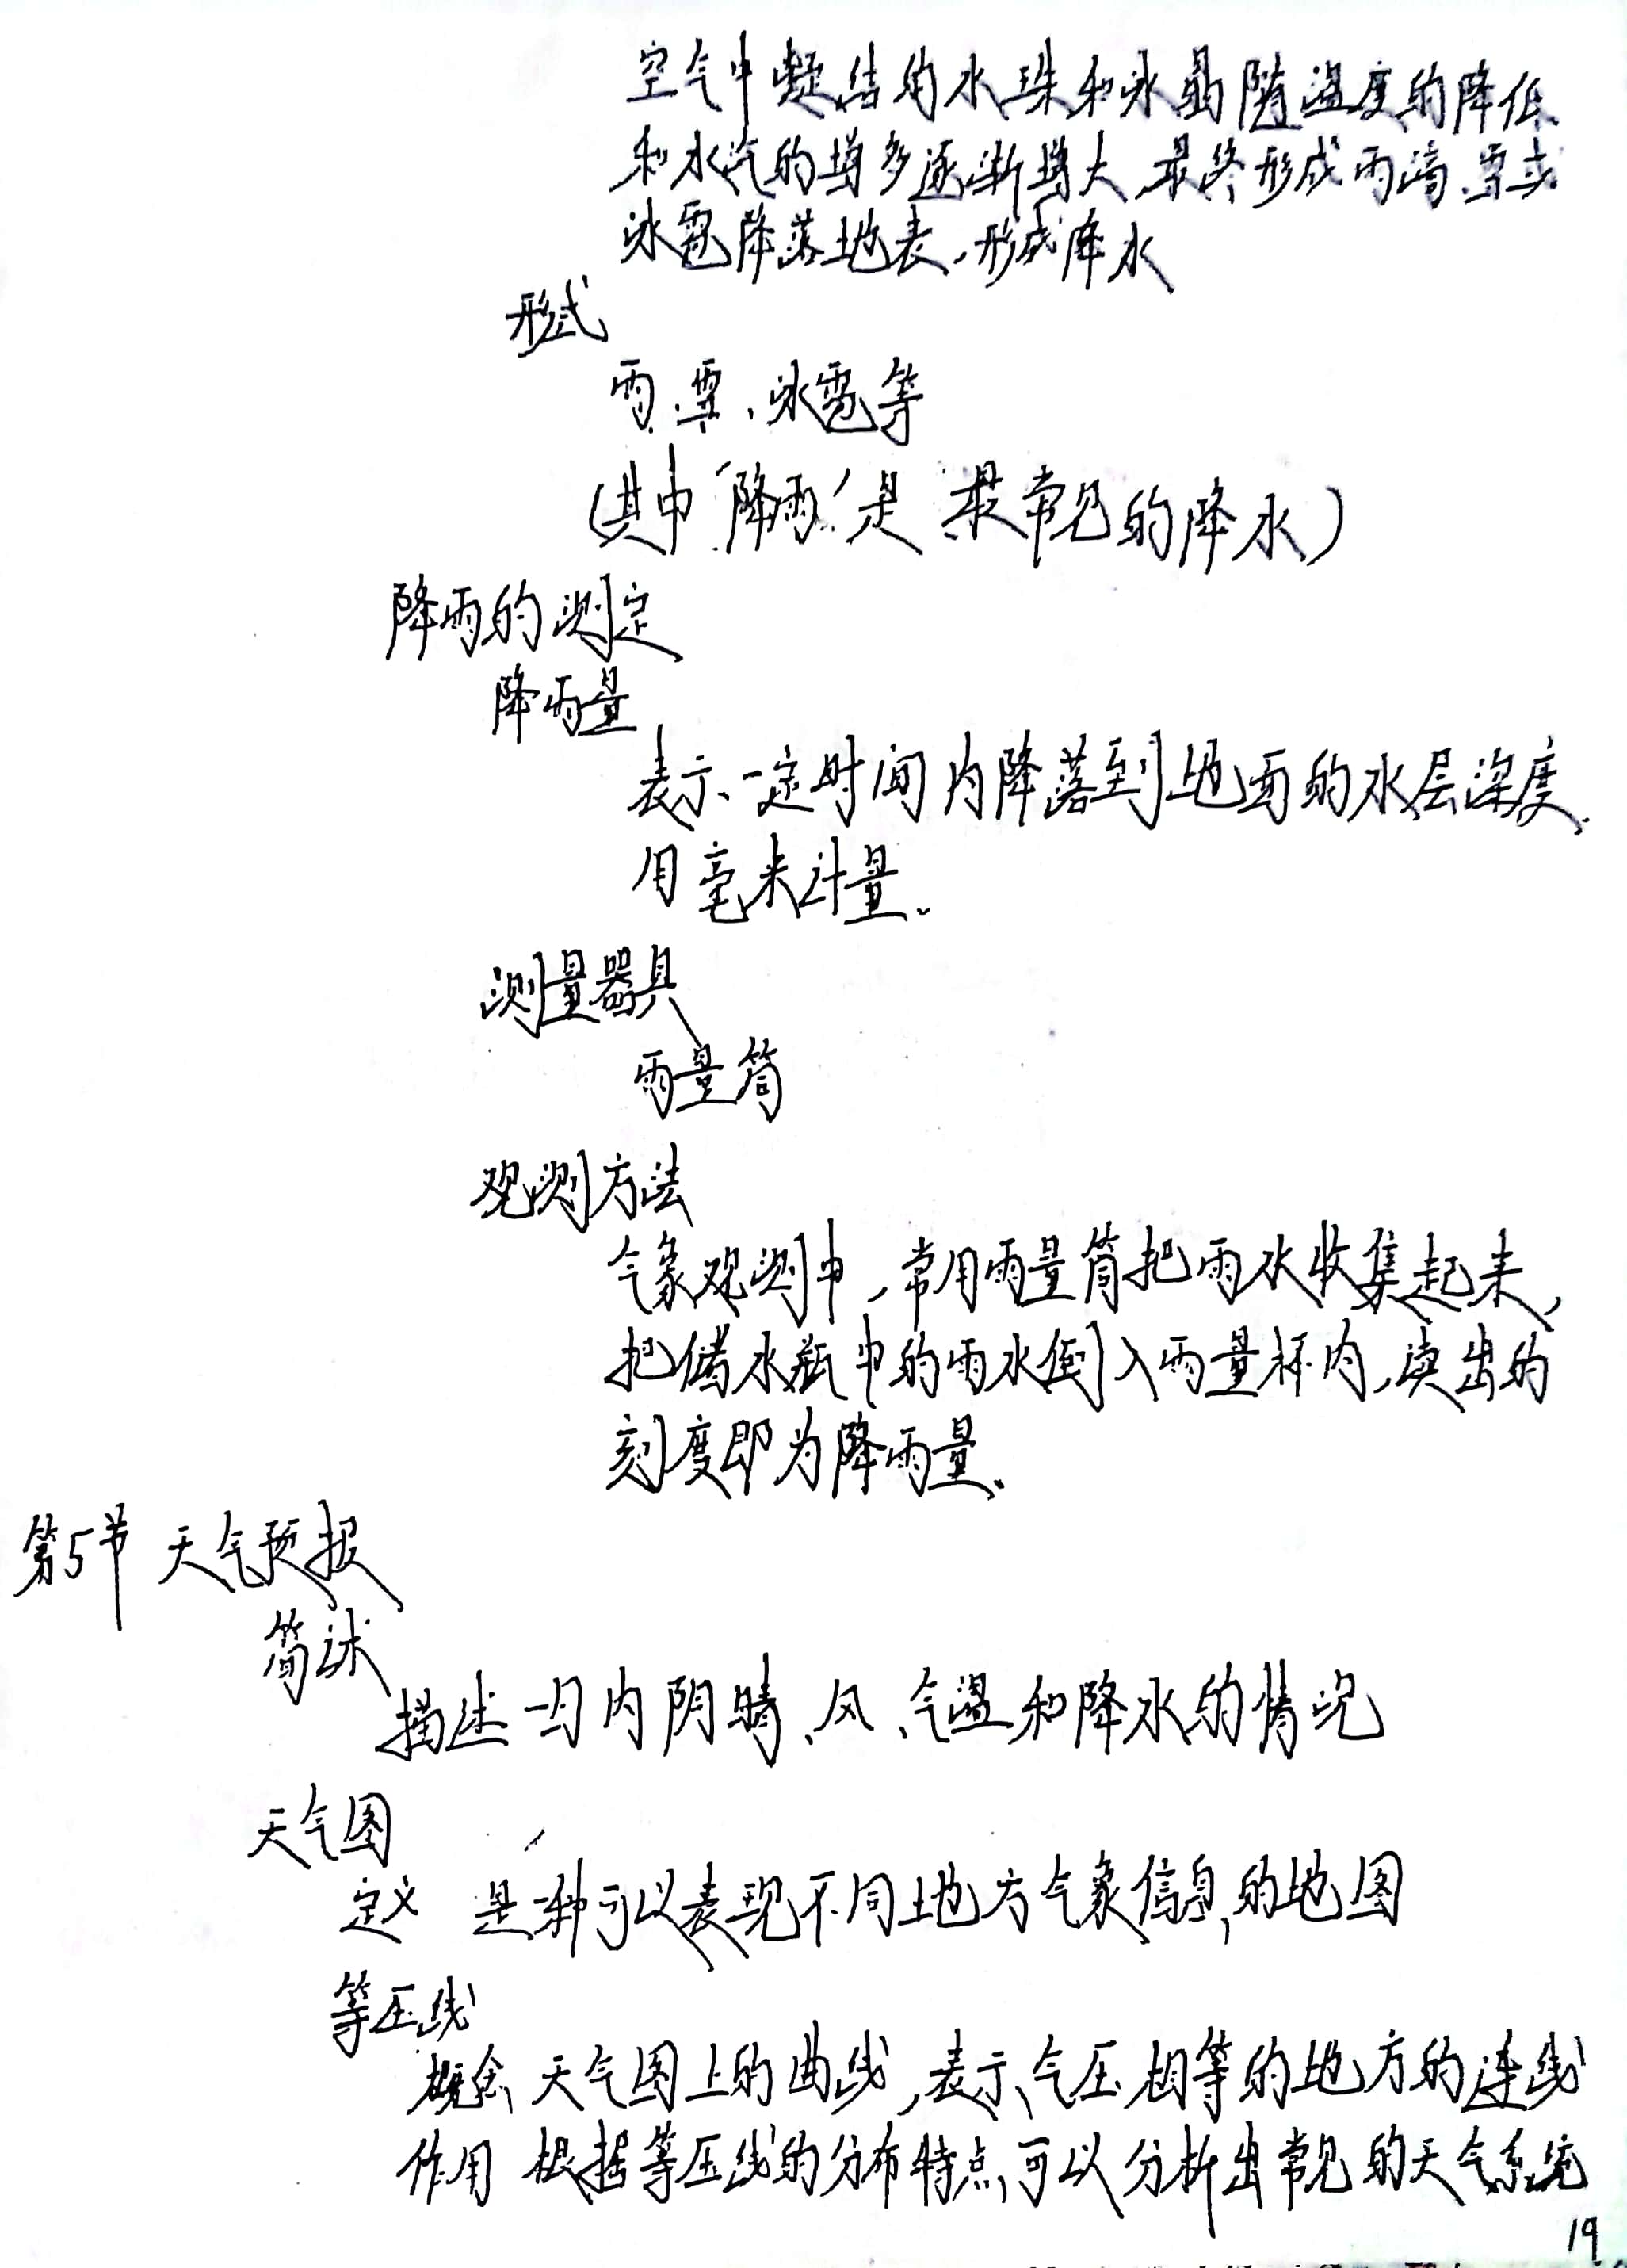 空气中凝结的水珠和冰晶随温度的降低
和水汽的增多逐渐增大,最终形成雨滴、雪或
冰雹降落地表,形成降水
形式
雨、雪、冰雹等
(其中“降雨”是最常见的降水)
降雨的测定
降雨量
表示一定时间内降落到地面的水层深度,
用毫米计量。
测量器具
雨量筒
观测方法
气象观测中,常用雨量筒把雨水收集起来,
把储水瓶中的雨水倒入雨量杯内,读出的
刻度即为降雨量。
第5节 天气预报
简述
描述一日内阴晴、风、气温和降水的情况
天气图
定义 是一种可以表现不同地方气象信息的地图
等压线
概念 天气图上的曲线,表示气压相等的地方的连线
作用 根据等压线的分布特点,可以分析出常见的天气系统
19